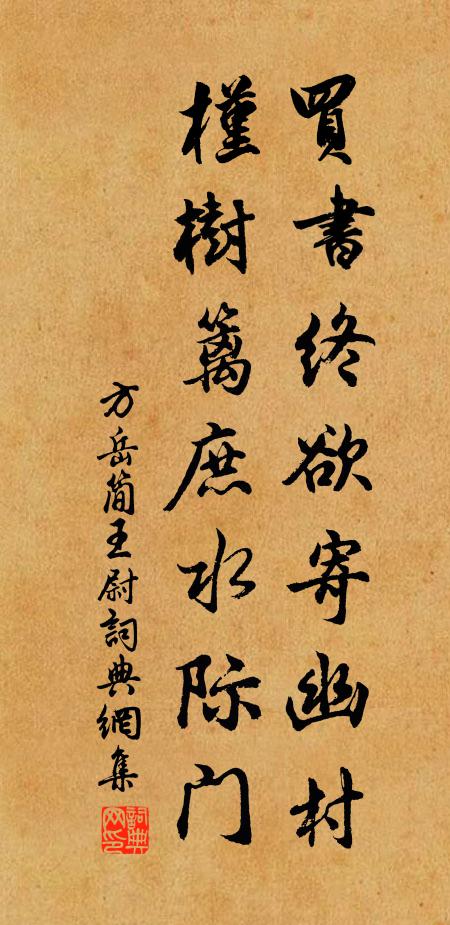 買書終欲寄幽村
槿樹籬庶水际门
方岳簡王尉詞典網集
詞典网印